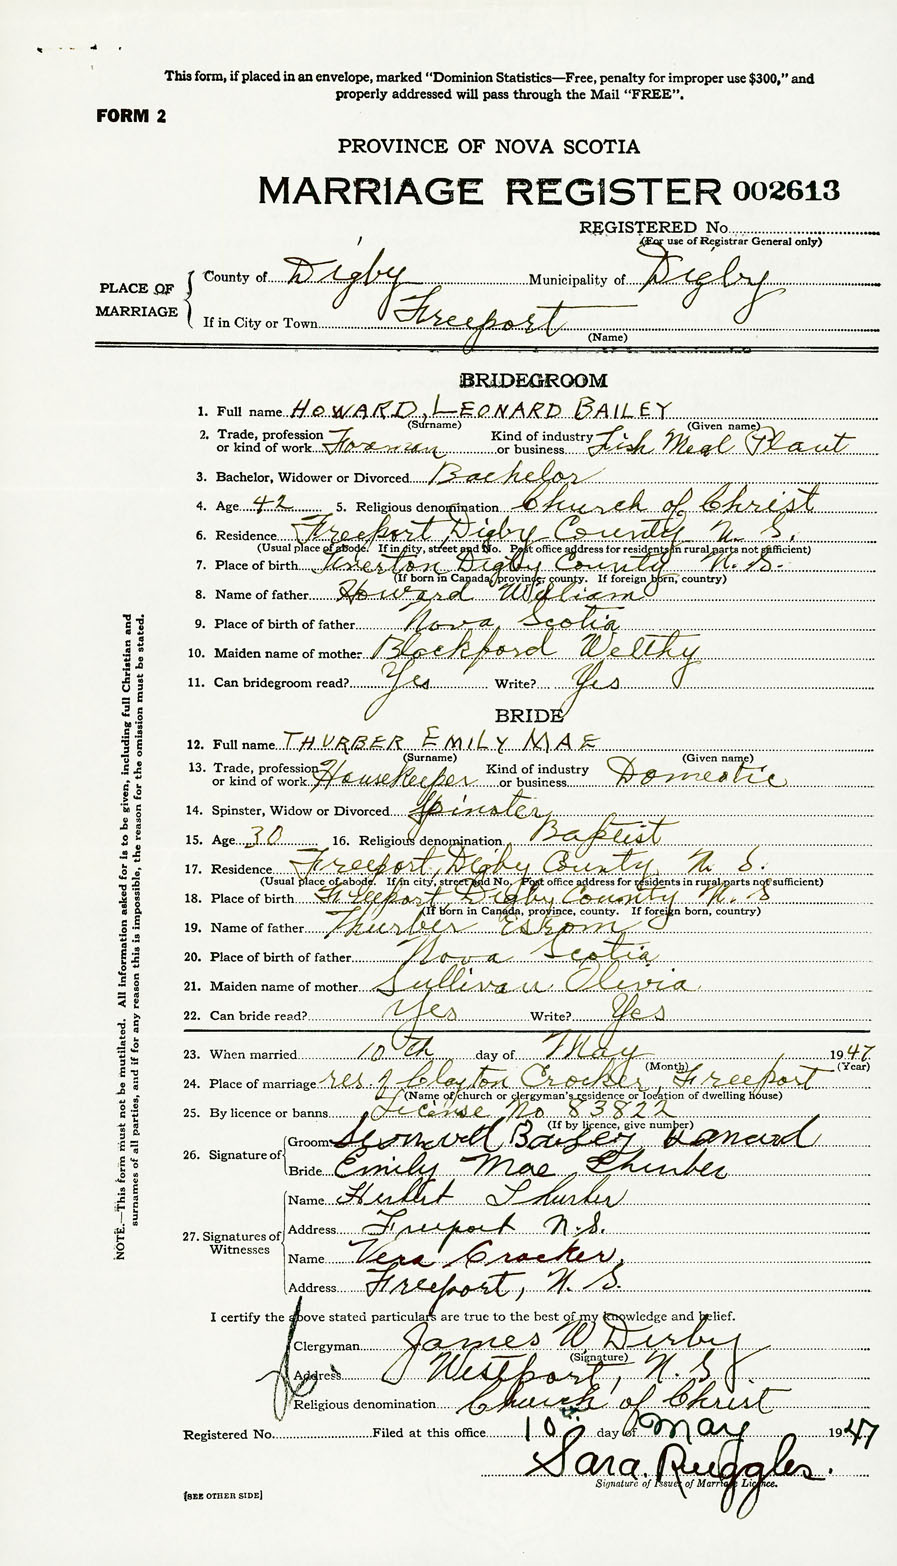 This form, if placed in an envelope, marked "Dominion Statistics—Free, penalty for improper use $300," and
properly addressed will pass through the Mail "FREE".
FORM 2
PROVINCE OF NOVA SCOTIA
MARRIAGE REGISTER 002613
REGISTERED No
(For use of Registrar General only)
PLACE OF MARRIAGE
County of Digby Municipality of Digby
If in City or Town Freeport
(Name)
BRIDEGROOM
1. Full name HOWARD, LEONARD BAILEY
(Surname) (Given name)
2. Trade, profession or kind of work Foreman Kind of industry or business Fish Meal Plant
3. Bachelor, Widower or Divorced Bachelor
4. Age 42 5. Religious denomination Church of Christ
6. Residence Freeport Digby County N. S.
(Usual place of abode. If in city, street and No. Post office address for residents in rural parts not sufficient)
7. Place of birth Tiverton Digby County N. S.
(If born in Canada, province, county. If foreign born, country)
8. Name of father Howard William
9. Place of birth of father Nova Scotia
10. Maiden name of mother Blackford Welthy
11. Can bridegroom read? Yes Write? Yes
BRIDE
12. Full name THURBER EMILY MAE
(Surname) (Given name)
13. Trade, profession or kind of work Housekeeper Kind of industry or business Domestic
14. Spinster, Widow or Divorced Spinster
15. Age 30 16. Religious denomination Baptist
17. Residence Freeport, Digby County, N. S.
(Usual place of abode. If in city, street and No. Post office address for residents in rural parts not sufficient)
18. Place of birth Freeport Digby County N. S
(If born in Canada, province, county. If foreign born, country)
19. Name of father Thurber
20. Place of birth of father Nova Scotia
21. Maiden name of mother Sullivan Olivia
22. Can bride read? Yes Write? Yes
23. When married 10th day of May 1947
(Month) (Year)
24. Place of marriage res. of Clayton Crocker, Freeport
(Name of church or clergyman's residence or location of dwelling house)
25. By licence or banns License No 83822
(If by licence, give number)
26. Signature of
Groom Bailey Howard
Bride Emily Mae Thurber
27. Signatures of Witnesses
Name Herbert Thurber
Address Freeport N.S.
Name Vera Crocker,
Address Freeport, N. S.
I certify the above stated particulars are true to the best of my knowledge and belief.
Clergyman James W. Derby
(Signature)
Address Westport, N. S
Religious denomination Church of Christ
Registered No. Filed at this office 10 day of May 1947
Sara. Ruggles.
Signature of Issuer of Marriage Licence.
[SEE OTHER SIDE]
NOTE.—This form must not be mutilated. All information asked for is to be given, including full Christian and
surnames of all parties, and if for any reason this is impossible, the reason for the omission must be stated.